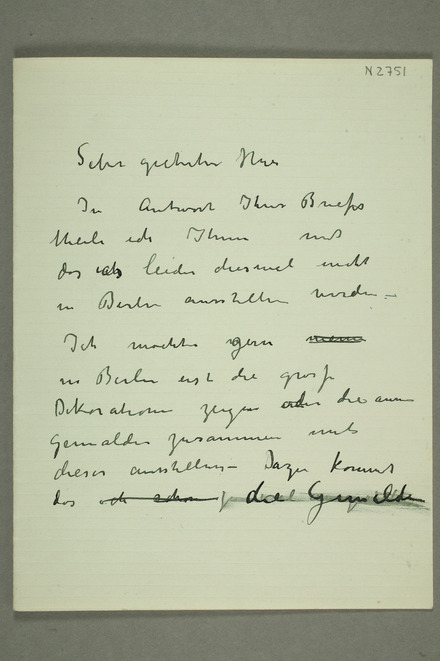 N 2751
Sehr geehrter Herr
In Antwort Ihres Briefes
theile ich Ihnen mit
das ich leider diesmal nicht
in Berlin ausstellen werde –
Ich möchte gern
in Berlin erst die große
Dekorationen zeigen oder die anderen
Gemälder zusammen mit
dieser ausstellen – Dazu kommt
das ich schon die Gemälde